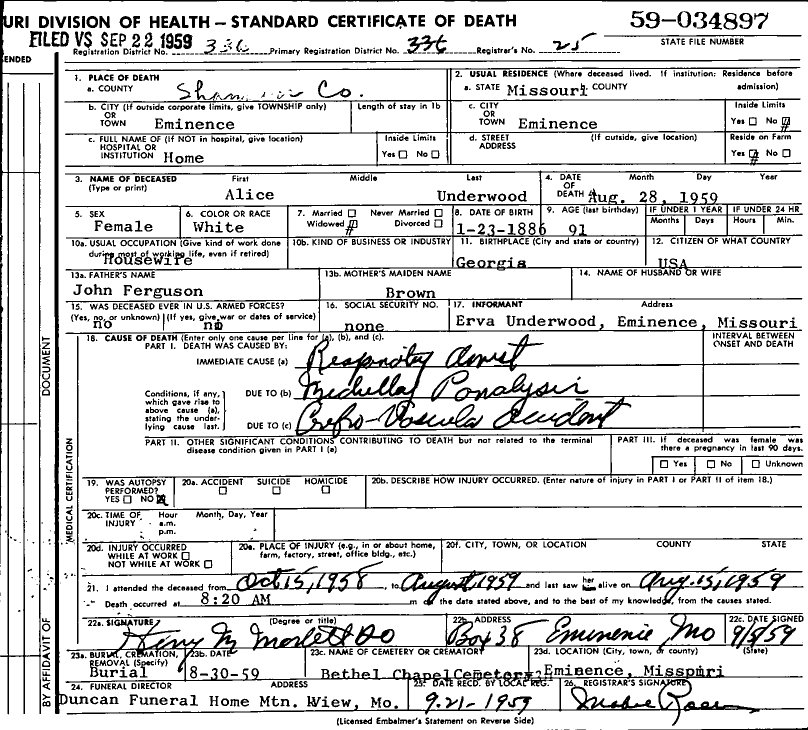 URI DIVISION OF HEALTH — STANDARD CERTIFICATE OF DEATH 59-034897
FILED VS SEP 22 1959 Registration District No. 336 Primary Registration District No. 336 Registrar's No. 25 STATE FILE NUMBER
ENDED
1. PLACE OF DEATH
a. COUNTY Shannon Co.
2. USUAL RESIDENCE (Where deceased lived. If institution: Residence before admission)
a. STATE Missouri COUNTY
b. CITY (If outside corporate limits, give TOWNSHIP only) OR TOWN Eminence
Length of stay in 1b
c. CITY OR TOWN Eminence
Inside Limits
Yes ☐ No ☒
c. FULL NAME OF (If NOT in hospital, give location) HOSPITAL OR INSTITUTION Home
Inside Limits
Yes ☐ No ☐
d. STREET ADDRESS (If outside, give location)
Reside on Farm
Yes ☒ No ☐
3. NAME OF DECEASED (Type or print)
First Middle Last
Alice Underwood
4. DATE OF DEATH Month Day Year
Aug. 28, 1959
5. SEX
Female
6. COLOR OR RACE
White
7. Married ☐ Never Married ☐
Widowed ☒ Divorced ☐
8. DATE OF BIRTH
1-23-1886
9. AGE (last birthday)
91
IF UNDER 1 YEAR
Months Days
IF UNDER 24 HR
Hours Min.
10a. USUAL OCCUPATION (Give kind of work done during most of working life, even if retired)
Housewife
10b. KIND OF BUSINESS OR INDUSTRY
11. BIRTHPLACE (City and state or country)
Georgia
12. CITIZEN OF WHAT COUNTRY
USA
13a. FATHER'S NAME
John Ferguson
13b. MOTHER'S MAIDEN NAME
Brown
14. NAME OF HUSBAND OR WIFE
15. WAS DECEASED EVER IN U.S. ARMED FORCES?
(Yes, no, or unknown) (If yes, give war or dates of service)
no no
16. SOCIAL SECURITY NO.
none
17. INFORMANT Address
Erva Underwood, Eminence, Missouri
18. CAUSE OF DEATH (Enter only one cause per line for (a), (b), and (c).
PART I. DEATH WAS CAUSED BY:
INTERVAL BETWEEN ONSET AND DEATH
IMMEDIATE CAUSE (a) Respiratory Arrest
Conditions, if any, which gave rise to above cause (a), stating the underlying cause last.
DUE TO (b) Medullary Paralysis
DUE TO (c) Cerebro-Vascular Accident
PART II. OTHER SIGNIFICANT CONDITIONS CONTRIBUTING TO DEATH but not related to the terminal disease condition given in PART I (a)
PART III. If deceased was female was there a pregnancy in last 90 days.
☐ Yes ☐ No ☐ Unknown
19. WAS AUTOPSY PERFORMED?
YES ☐ NO ☒
20a. ACCIDENT SUICIDE HOMICIDE
☐ ☐ ☐
20b. DESCRIBE HOW INJURY OCCURRED. (Enter nature of injury in PART I or PART II of item 18.)
20c. TIME OF INJURY Hour a.m. p.m. Month, Day, Year
20d. INJURY OCCURRED
WHILE AT WORK ☐
NOT WHILE AT WORK ☐
20e. PLACE OF INJURY (e.g., in or about home, farm, factory, street, office bldg., etc.)
20f. CITY, TOWN, OR LOCATION COUNTY STATE
21. I attended the deceased from Oct 15, 1958, to August, 1959 and last saw her alive on Aug. 15, 1959
Death occurred at 8:20 AM m on the date stated above, and to the best of my knowledge, from the causes stated.
22a. SIGNATURE (Degree or title)
DO
22b. ADDRESS
Box 38 Eminence Mo
22c. DATE SIGNED
9/5/59
23a. BURIAL, CREMATION, REMOVAL (Specify)
Burial
23b. DATE
8-30-59
23c. NAME OF CEMETERY OR CREMATORY
Bethel Chapel Cemetery
23d. LOCATION (City, town, or county) (State)
Eminence, Missouri
24. FUNERAL DIRECTOR ADDRESS
Duncan Funeral Home Mtn. View, Mo.
25. DATE RECD. BY LOCAL REG.
9-21-1959
26. REGISTRAR'S SIGNATURE
(Licensed Embalmer's Statement on Reverse Side)
DOCUMENT
MEDICAL CERTIFICATION
BY AFFIDAVIT OF